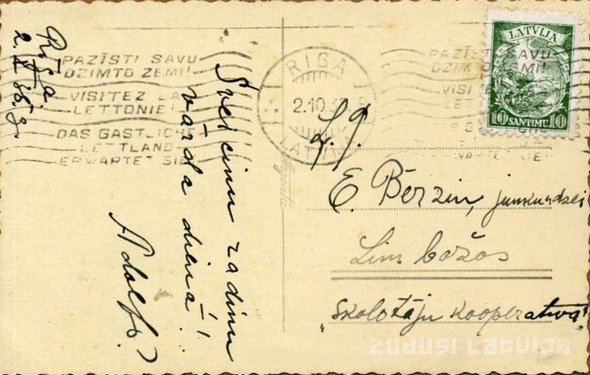 Rīgā
2.X 36.g
PAZĪSTI SAVU
DZIMTO ZEMI!
VISITEZ LA
LETTONIE!
DAS GASTLICHE
LETTLAND
ERWARTET SIE!
RIGA
2.10
LATVIJA
LATVIJA
10 SANTIMU 10
Sveicinu radinu
vārda dienā!
Adolfs
E. Bērziņ, junkundzei
Limbažos
Skolotāju kooperatīvā
ZUDUSI LATVIJA